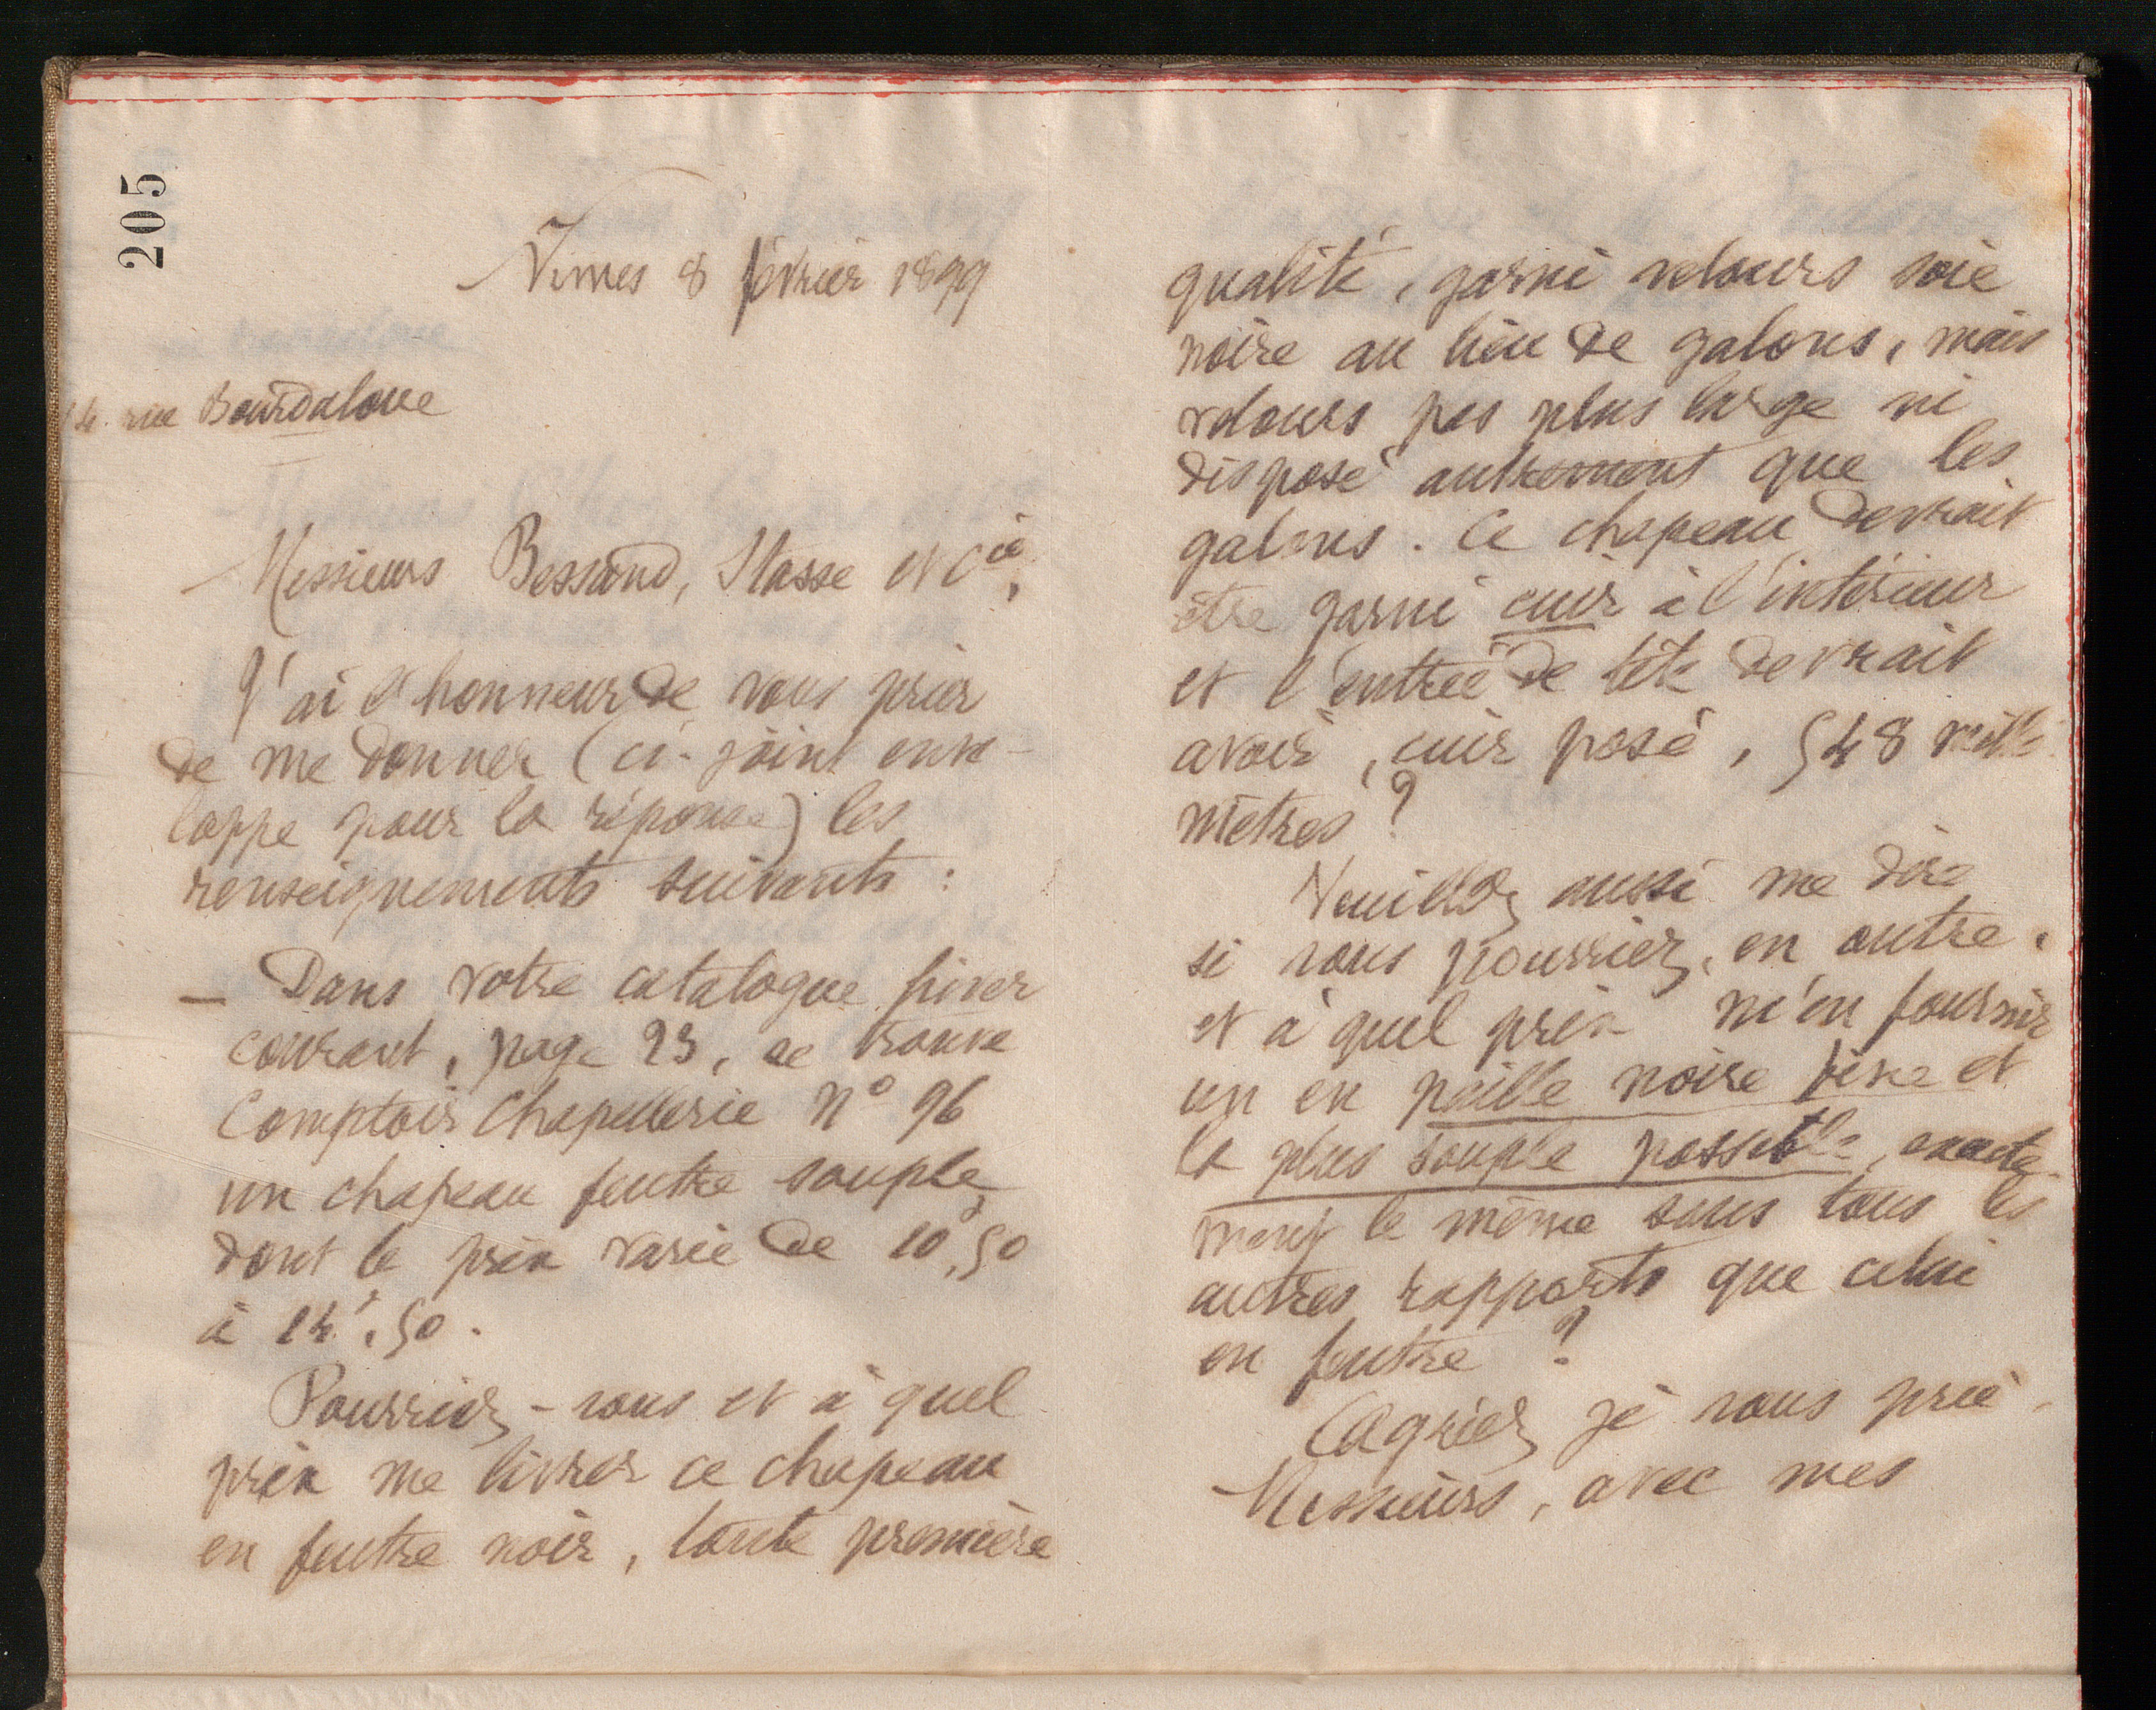 205
Nimes 8 février 1899
14 rue Bourdaloue
Messieurs Bessand, Stasse et Cie,
J'ai l'honneur de vous prier
de me donner (ci-joint enve-
loppe pour la réponse) les
renseignements suivants :
— Dans votre catalogue hiver
courant, page 23, se trouve
Comptoir Chapellerie N° 96
un chapeau feutre souple
dont le prix varie de 10f,50
à 14f,50.
Pourriez-vous et à quel
prix me livrer ce chapeau
en feutre noir, toute première
qualité, garni velours soie
noire au lieu de galons, mais
velours pas plus large ni
disposé autrement que les
galons. Ce chapeau devrait
être garni cuir à l'intérieur
et l'entrée de tête devrait
avoir, cuir posé, 548 milli-
mètres ?
Veuillez aussi me dire
si vous pourriez, en outre,
et à quel prix m'en fournir
un en paille noire fine et
la plus souple possible, exacte-
ment le même sous tous les
autres rapports que celui
en feutre ?
Agréez je vous prie,
Messieurs, avec mes